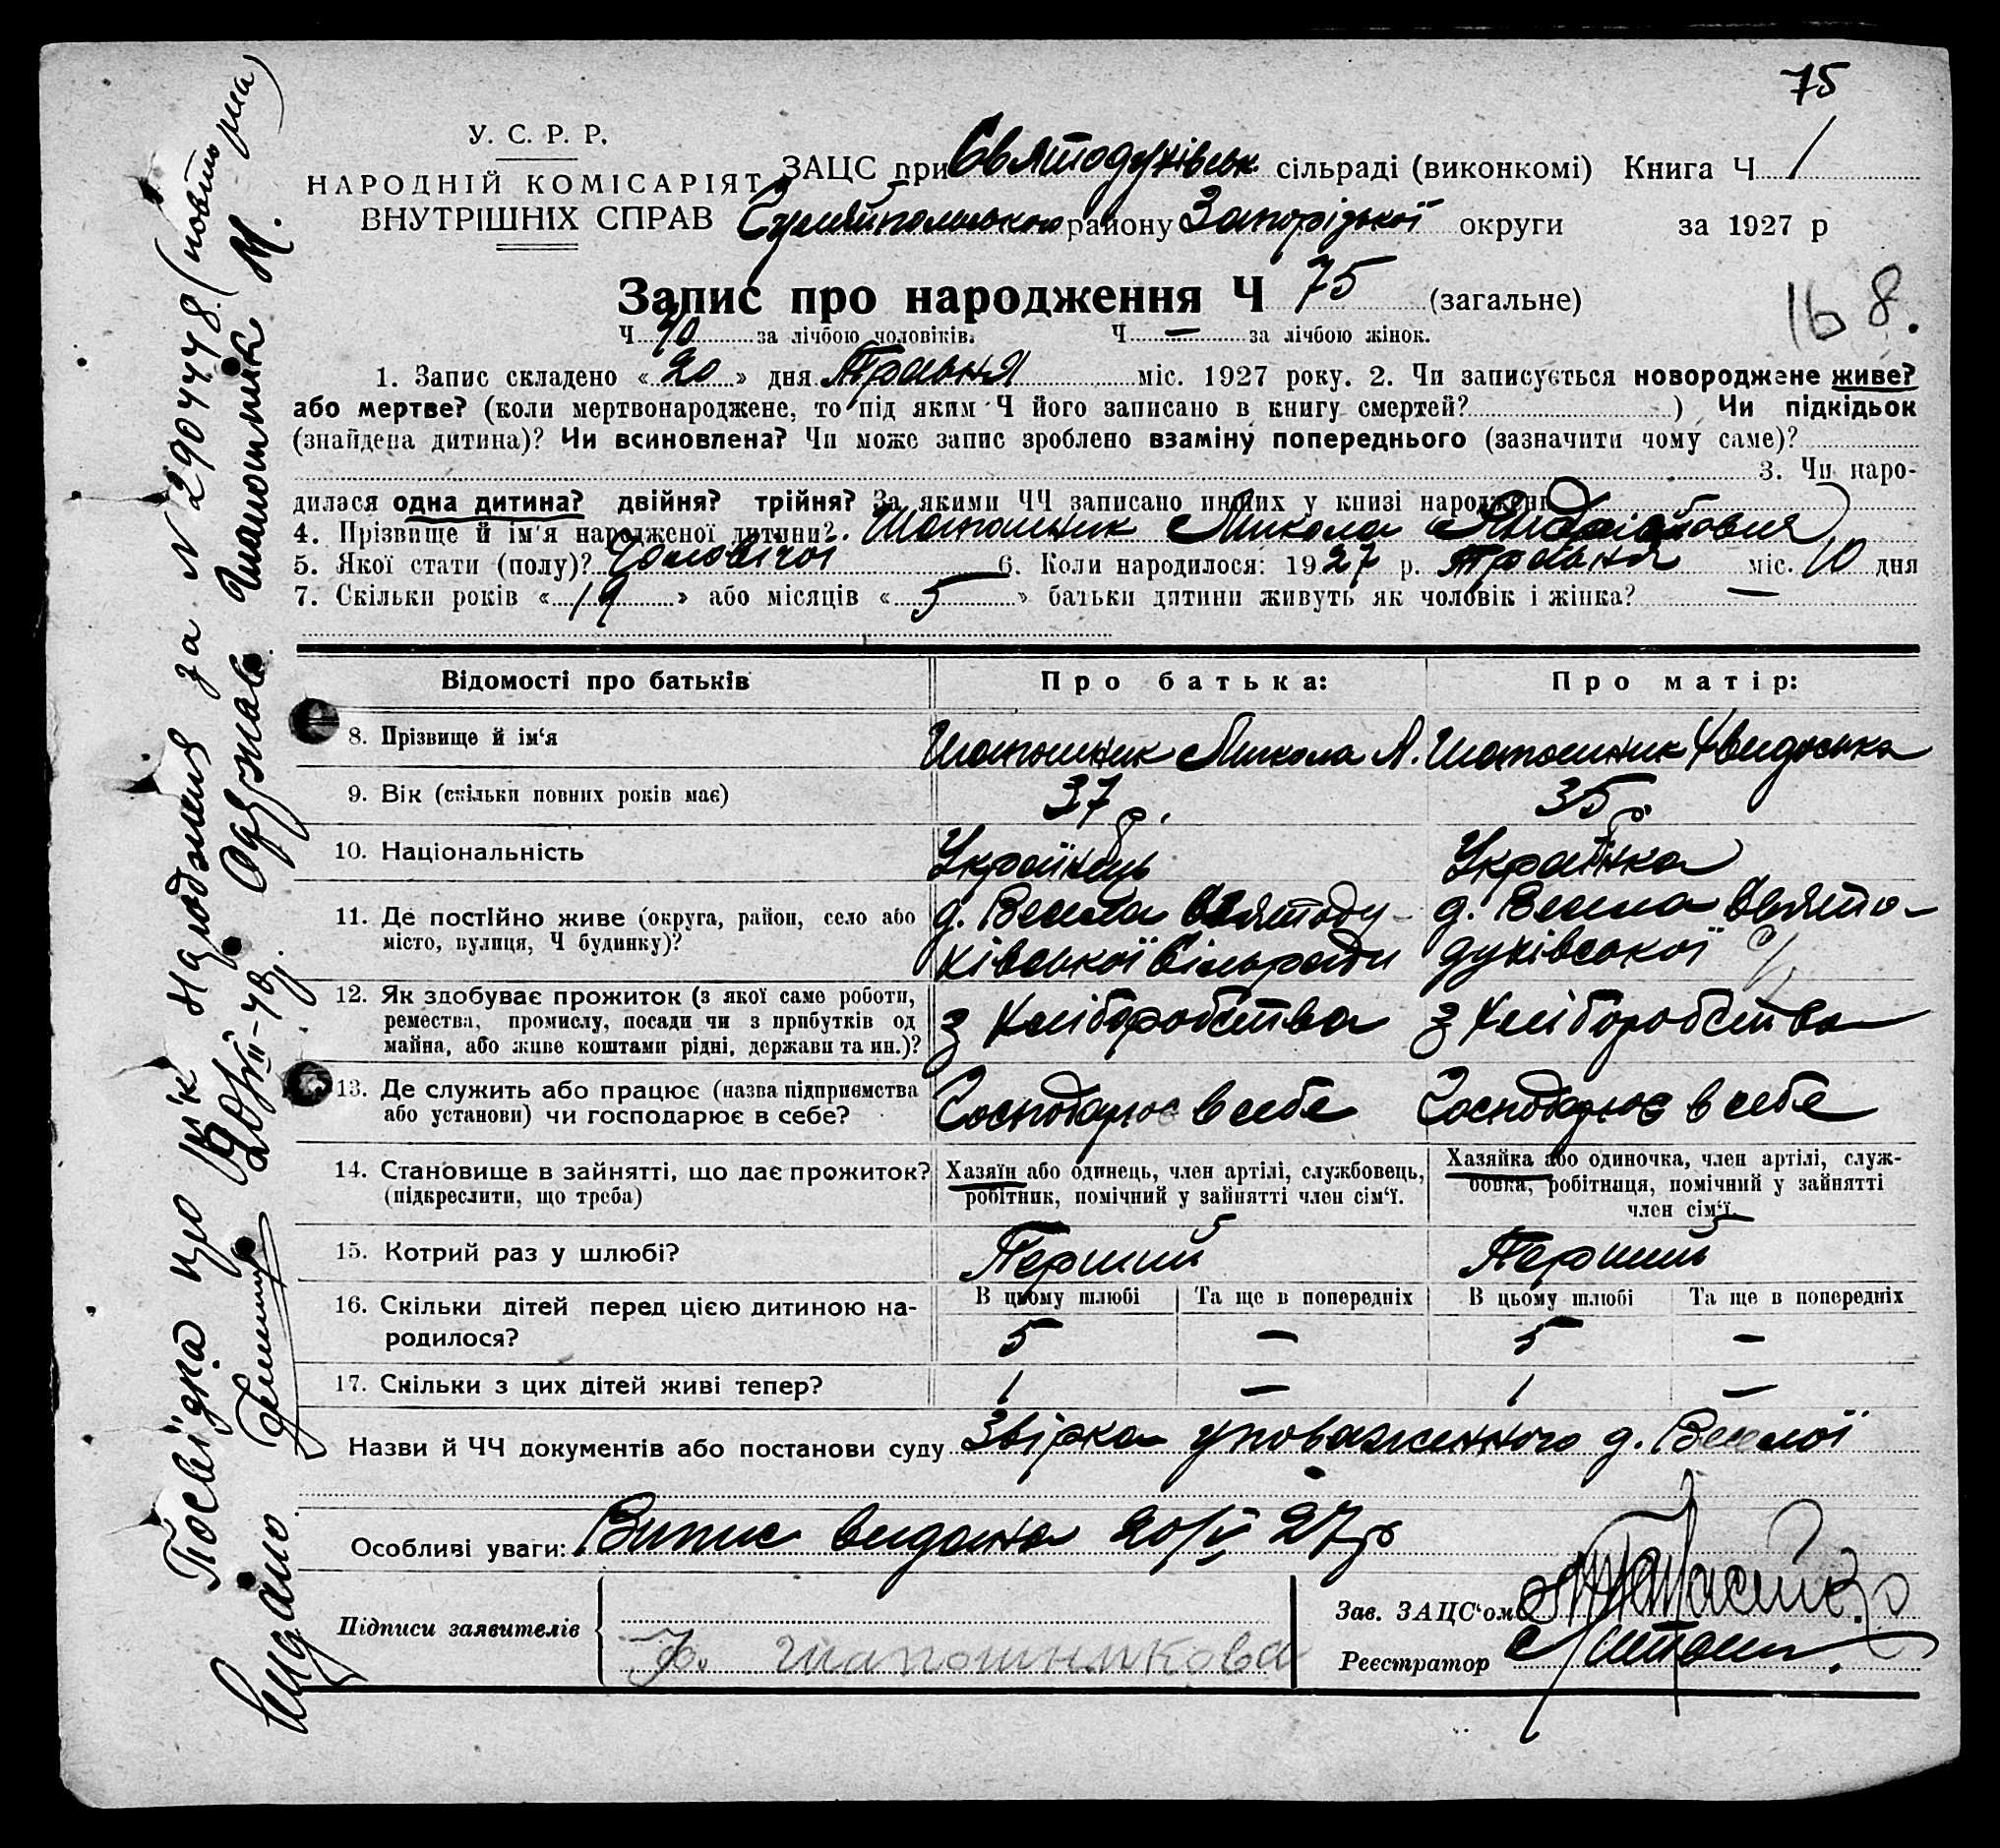 75
У. С. Р. Р.
НАРОДНІЙ КОМІСАРІЯТ
ВНУТРІШНІХ СПРАВ
ЗАЦС при Святодухівськ. сільраді (виконкомі) Книга Ч 1
Гуляйпольського району Запорізької округи за 1927 р
Запис про народження Ч 75 (загальне)
168.
Ч 40 за лічбою чоловіків. Ч — за лічбою жінок.
1. Запис складено «20» дня Травня міс. 1927 року. 2. Чи записується новороджене живе?
або мертве? (коли мертвонароджене, то під яким Ч його записано в книгу смертей? ) Чи підкідьок
(знайдена дитина)? Чи всиновлена? Чи може запис зроблено взаміну попереднього (зазначити чому саме)?
3. Чи наро-
дилася одна дитина? двійня? трійня? За якими ЧЧ записано инших у книзі народжень
4. Прізвище й ім'я народженої дитини? Шапошник Микола
5. Якої стати (полу)? Чоловічої 6. Коли народилося: 1927 р. травня міс. 10 дня
7. Скільки років «19» або місяців «5» батьки дитини живуть як чоловік і жінка? —
Відомості про батьків Про батька: Про матір:
8. Прізвище й ім'я Шапошник Микола А. Шапошник Явидоська
9. Вік (скільки повних років має) 37 р. 35 р.
10. Національність Українець Українка
11. Де постійно живе (округа, район, село або місто, вулиця, Ч будинку)?
д. Весела Святоду-
хівської Сільради
д. Весела Свято-
духівської с/р
12. Як здобуває прожиток (з якої саме роботи, ремества, промислу, посади чи з прибутків од майна, або живе коштами рідні, держави та ин.)?
з Хліборобства з Хліборобства
13. Де служить або працює (назва підприємства або установи) чи господарює в себе?
Господарює в себе Господарює в себе
14. Становище в зайнятті, що дає прожиток? (підкреслити, що треба)
Хазяїн або одинець, член артілі, службовець,
робітник, помічний у зайнятті член сім'ї.
Хазяйка або одиночка, член артілі, служ-
бовка, робітниця, помічний у зайнятті
член сім'ї.
15. Котрий раз у шлюбі? Перший Перший
16. Скільки дітей перед цією дитиною на-
родилося?
В цьому шлюбі Та ще в попередніх В цьому шлюбі Та ще в попередніх
5 — 5 —
17. Скільки з цих дітей живі тепер? 1 — 1 —
Назви й ЧЧ документів або постанови суду Звірка уповаженного д. Веселої
Особливі уваги: Випис видана 20/V 27 р
Підписи заявителів
Шапошникова
Зав. ЗАЦС'ом
Реєстратор
Посвідка про народження за N 290448 (повторна)
видано
Одержав Шапошник М.